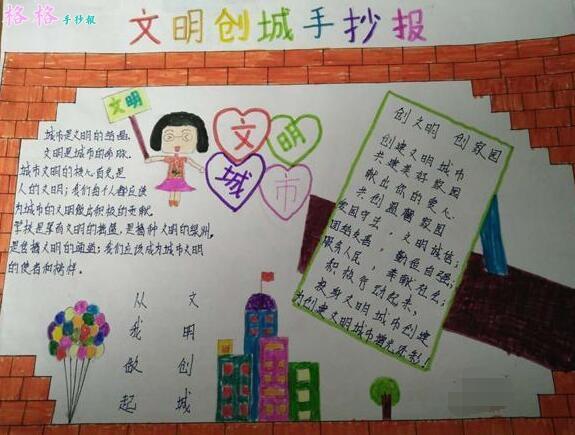 格格手抄报
文明创城手抄报
文明
文明
城市
城市是文明的
文明是城市的
城市文明的核心首先是
人的文明；我们每个人都应该
为城市的文明做出积极的贡献。
学校是
是传播文明的
我们应该成为城市文明
的使者和榜样。
从文
我明
做创
起城
创文明 创家园
创建文明城市
共建美好家园
献出你的爱心
共创温馨家园
爱国守法，文明诚信；
团结友善，勤俭自强；
服务人民，奉献社会；
积极行动起来，
投身文明城市创建
为创建文明城市增光添彩！